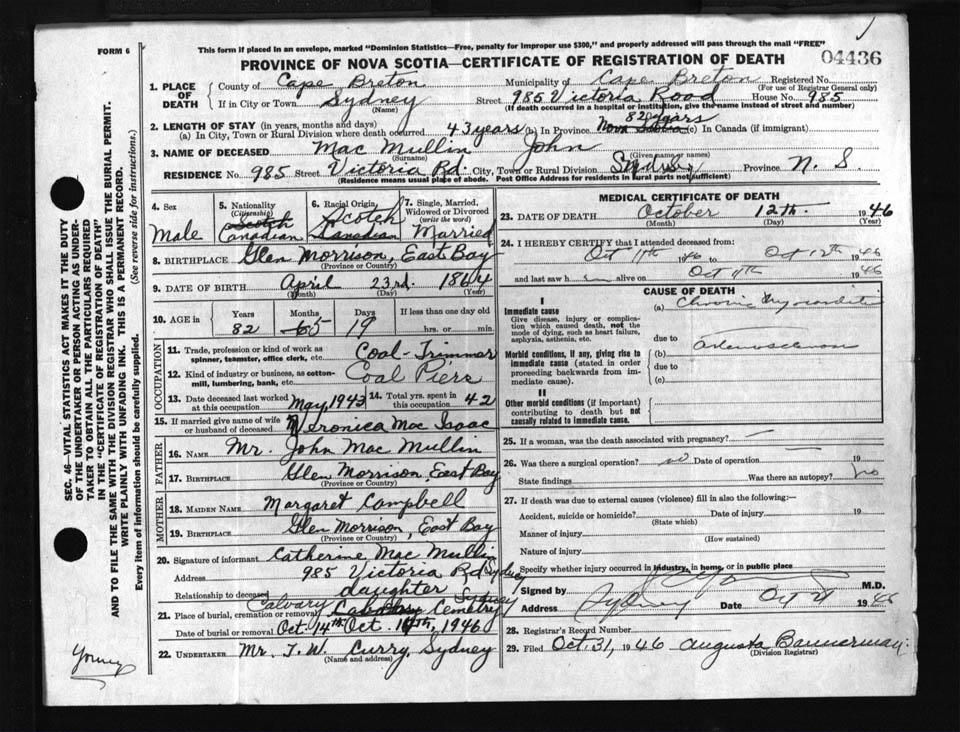 FORM 6
This form if placed in an envelope, marked "Dominion Statistics—Free, penalty for improper use $300," and properly addressed will pass through the mail "FREE"
PROVINCE OF NOVA SCOTIA—CERTIFICATE OF REGISTRATION OF DEATH
04436
1. PLACE OF DEATH
County of Cape Breton Municipality of Cape Breton Registered No.
(For use of Registrar General only)
If in City or Town Sydney Street 985 Victoria Road House No. 985
(Name) (If death occurred in a hospital or institution, give the name instead of street and number)
2. LENGTH OF STAY (in years, months and days)
82 years
(a) In City, Town or Rural Division where death occurred 43 years (b) In Province Nova Scotia (c) In Canada (if immigrant)
3. NAME OF DECEASED Mac Mullin John
(Surname) (Given name or names)
RESIDENCE No. 985 Street Victoria Rd. City, Town or Rural Division Sydney Province N. S.
(Residence means usual place of abode. Post Office Address for residents in rural parts not sufficient)
4. Sex
Male
5. Nationality (Citizenship)
Scotch
Canadian
6. Racial Origin
Scotch
Canadian
7. Single, Married, Widowed or Divorced (write the word)
Married
8. BIRTHPLACE Glen Morrison, East Bay
(Province or Country)
9. DATE OF BIRTH April 23rd. 1864
(Month) (Day) (Year)
10. AGE in Years Months Days If less than one day old
82 65 19 hrs. or min.
OCCUPATION
11. Trade, profession or kind of work as spinner, teamster, office clerk, etc. Coal-Trimmer
12. Kind of industry or business, as cotton-mill, lumbering, bank, etc. Coal Piers
13. Date deceased last worked at this occupation May, 1943
14. Total yrs. spent in this occupation 42
15. If married give name of wife or husband of deceased Veronica Mac Isaac
FATHER
16. NAME Mr. John Mac Mullin
17. BIRTHPLACE Glen Morrison, East Bay
(Province or Country)
MOTHER
18. MAIDEN NAME Margaret Campbell
19. BIRTHPLACE Glen Morrison, East Bay
(Province or Country)
20. Signature of informant Catherine Mac Mullin
Address 985 Victoria Rd Sydney
Relationship to deceased daughter
21. Place of burial, cremation or removal Calvary Cemetry Sydney
Date of burial or removal Oct. 14th Oct. 14th, 1946
22. UNDERTAKER Mr. T. W. Curry, Sydney
(Name and address)
MEDICAL CERTIFICATE OF DEATH
23. DATE OF DEATH October 12th. 1946
(Month) (Day) (Year)
24. I HEREBY CERTIFY that I attended deceased from:
Oct 11th 1946 to Oct 12th 1946
and last saw h alive on Oct 11th 1946
CAUSE OF DEATH
I
Immediate cause
Give disease, injury or complication which caused death, not the mode of dying, such as heart failure, asphyxia, asthenia, etc.
(a) Chronic Myocarditis
due to
Morbid conditions, if any, giving rise to immediate cause (stated in order proceeding backwards from immediate cause).
(b)
due to
(c)
II
Other morbid conditions (if important) contributing to death but not causally related to immediate cause.
25. If a woman, was the death associated with pregnancy? —
26. Was there a surgical operation? no Date of operation 19
State findings Was there an autopsy? no
27. If death was due to external causes (violence) fill in also the following:—
Accident, suicide or homicide? Date of injury 19
(State which)
Manner of injury
(How sustained)
Nature of injury
Specify whether injury occurred in industry, in home, or in public place
Signed by M.D.
Address Sydney Date Oct 1946
28. Registrar's Record Number
29. Filed Oct. 31, 1946 Augusta Bannerman
(Division Registrar)
SEC. 46—VITAL STATISTICS ACT MAKES IT THE DUTY
OF THE UNDERTAKER OR PERSON ACTING AS UNDER-
TAKER TO OBTAIN ALL THE PARTICULARS REQUIRED
IN THE "CERTIFICATE OF REGISTRATION OF DEATH"
AND TO FILE THE SAME WITH THE DIVISION REGISTRAR WHO SHALL ISSUE THE BURIAL PERMIT.
WRITE PLAINLY WITH UNFADING INK. THIS IS A PERMANENT RECORD.
Every item of information should be carefully supplied. (See reverse side for instructions.)
Young